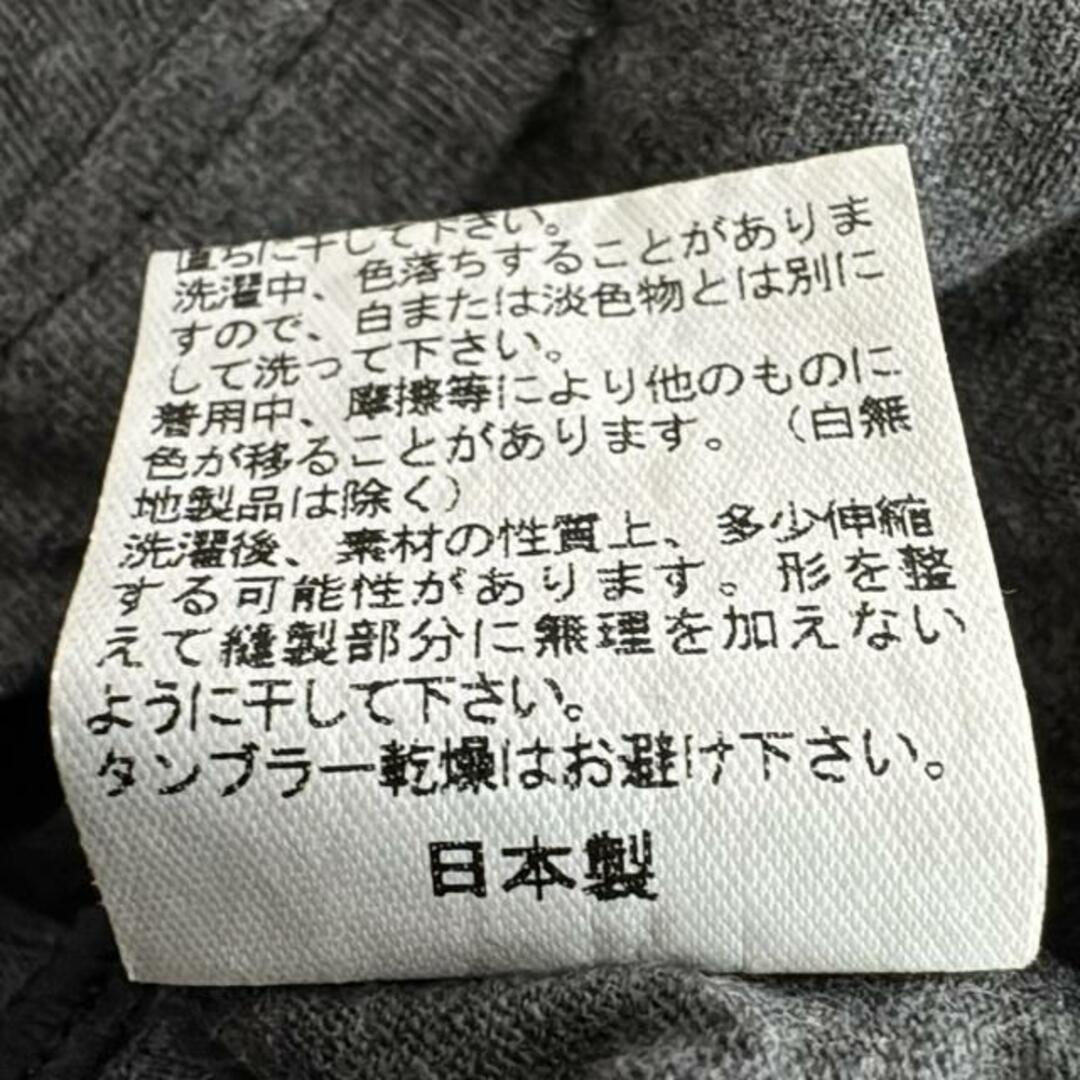 直ちに干して下さい。
洗濯中、色落ちすることがありま
すので、白または淡色物とは別に
して洗って下さい。
着用中、摩擦等により他のものに
色が移ることがあります。（白無
地製品は除く）
洗濯後、素材の性質上、多少伸縮
する可能性があります。形を整
えて縫製部分に無理を加えない
ように干して下さい。
タンブラー乾燥はお避け下さい。
日本製